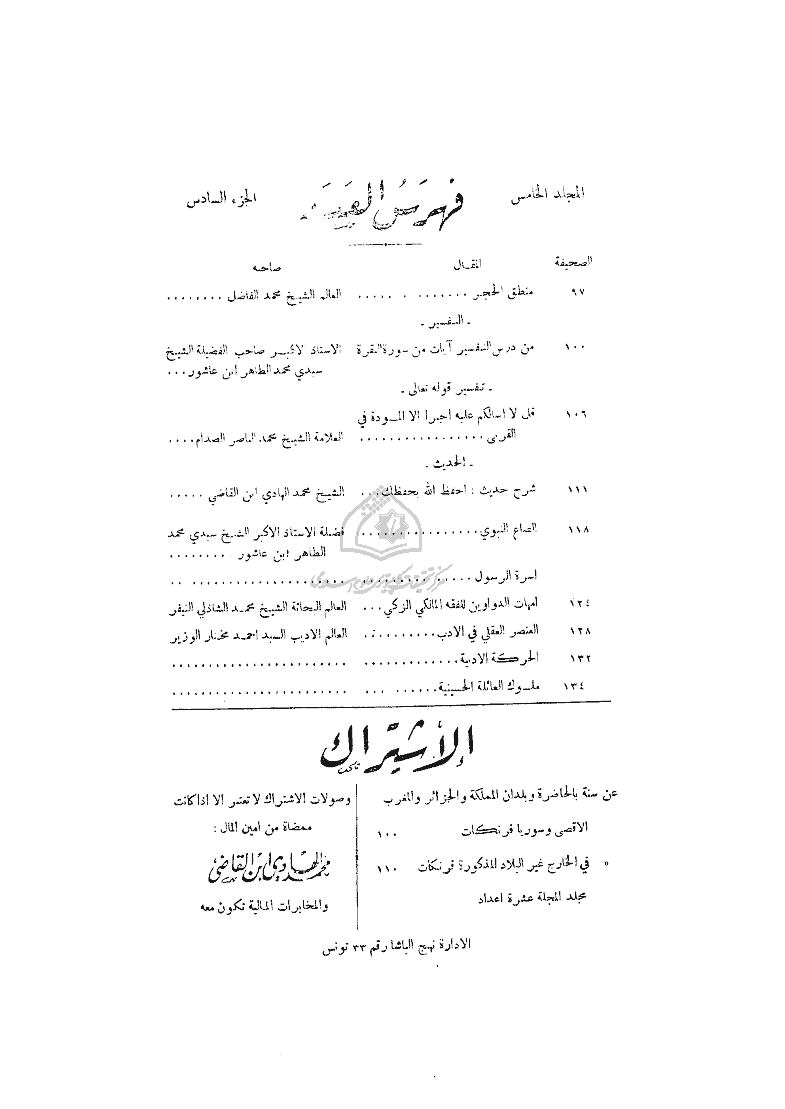 المجلد الخامس
فهرس العدد
الجزء السادس
الصحيفة المقال صاحبه
٩٧ منطق الحجر ....... . ..... العالم الشيخ محمد الفاضل ........
ـ التفسير ـ
١٠٠ من درس التفسير آيات من سورة البقرة الاستاذ الاكبر صاحب الفضيلة الشيخ
سيدي محمد الطاهر ابن عاشور...
ـ تفسير قوله تعالى ـ
١٠٦ قل لا اسالكم عليه اجرا الا المودة في
القربى ................. العلامة الشيخ محمد الناصر الصدام....
ـ الحديث ـ
١١١ شرح حديث : احفظ الله يحفظك... الشيخ محمد الهادي ابن القاضي .....
١١٨ الصاع النبوي................ فضلة الاستاذ الاكبر الشيخ سيدي محمد
الطاهر ابن عاشور . ........
اسرة الرسول ..... .......... .................... ..
١٢٤ امهات الدواوين للفقه المالكي الزكي... العالم البحاثة الشيخ محمد الشاذلي النيفر
١٢٨ العنصر العقلي في الادب.......... العالم الاديب السيد احمد مختار الوزير
١٣٢ الحركة الادبية............. ........................
١٣٤ ملوك العائلة الحسينية...... ... ........................
الاشتراك
عن سنة بالحاضرة وبلدان المملكة والجزائر والمغرب
الاقصى وسوريا فرنكات ١٠٠
» في الخارج غير البلاد المذكورة فرنكات ١١٠
مجلد المجلة عشرة اعداد
وصولات الاشتراك لا تعتبر الا اذا كانت
ممضاة من امين المال :
محمد الهادي ابن القاضي
والمخابرات المالية تكون معه
الادارة نهج الباشا رقم ٣٣ تونس